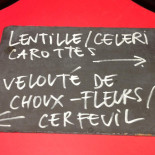 LENTILLE/CELERI
CAROTTES
VELOUTÉ DE
CHOUX-FLEURS/
CERFEUIL